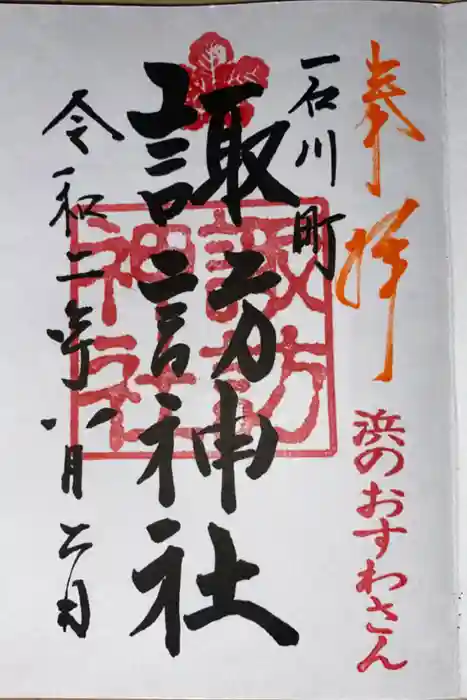 奉拝
浜のおすわさん
石川町
諏訪神社
諏訪
神社
令和二年八月六日